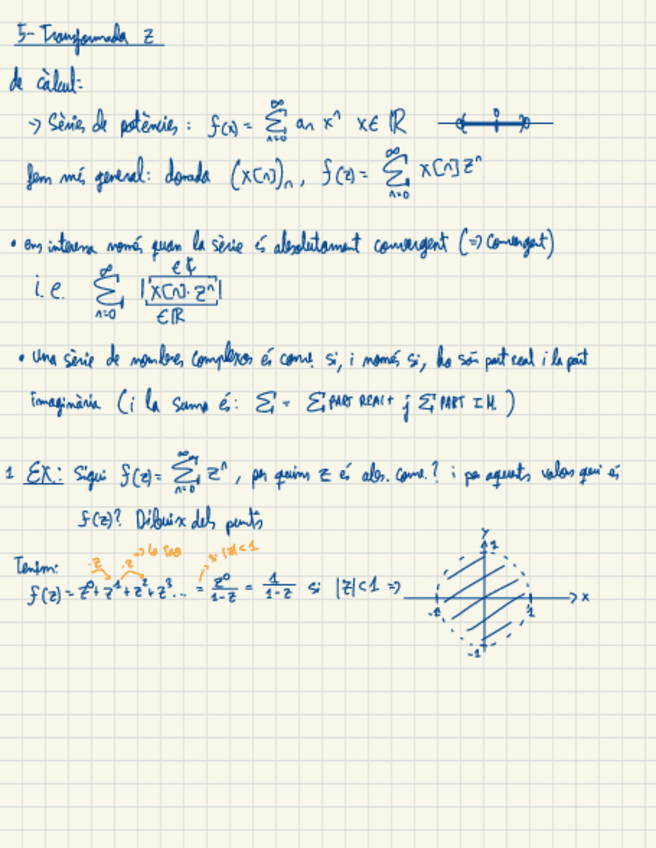 5- Transformada Z
de càlcul:
-> Sèries de potències: f(x) = ∑_{n=0}^{∞} an x^n x ∈ ℝ
fem més general: donada (x[n])_n, f(z) = ∑_{n=0}^{∞} x[n] z^n
• ens interessa només quan la sèrie és absolutament convergent (=> convergent)
∈ ℂ
i.e. ∑_{n=0}^{∞} |x[n]·z^n|
∈ ℝ
• Una sèrie de nombres complexos és conv. si, i només si, ho són part real i la part
imaginària (i la suma és: ∑ = ∑ PART REAL + j ∑ PART IM.)
1 EX.: Sigui f(z) = ∑_{n=0}^{∞} z^n, per quins z és abs. conv.? i per aquests valors qui és
f(z)? Dibuix dels punts
·z ·z => la raó si |z|<1
Tenim:
f(z) = z^0 + z^1 + z^2 + z^3 ... = z^0/(1-z) = 1/(1-z) si |z|<1 =>
y
1
-1 1 x
-1